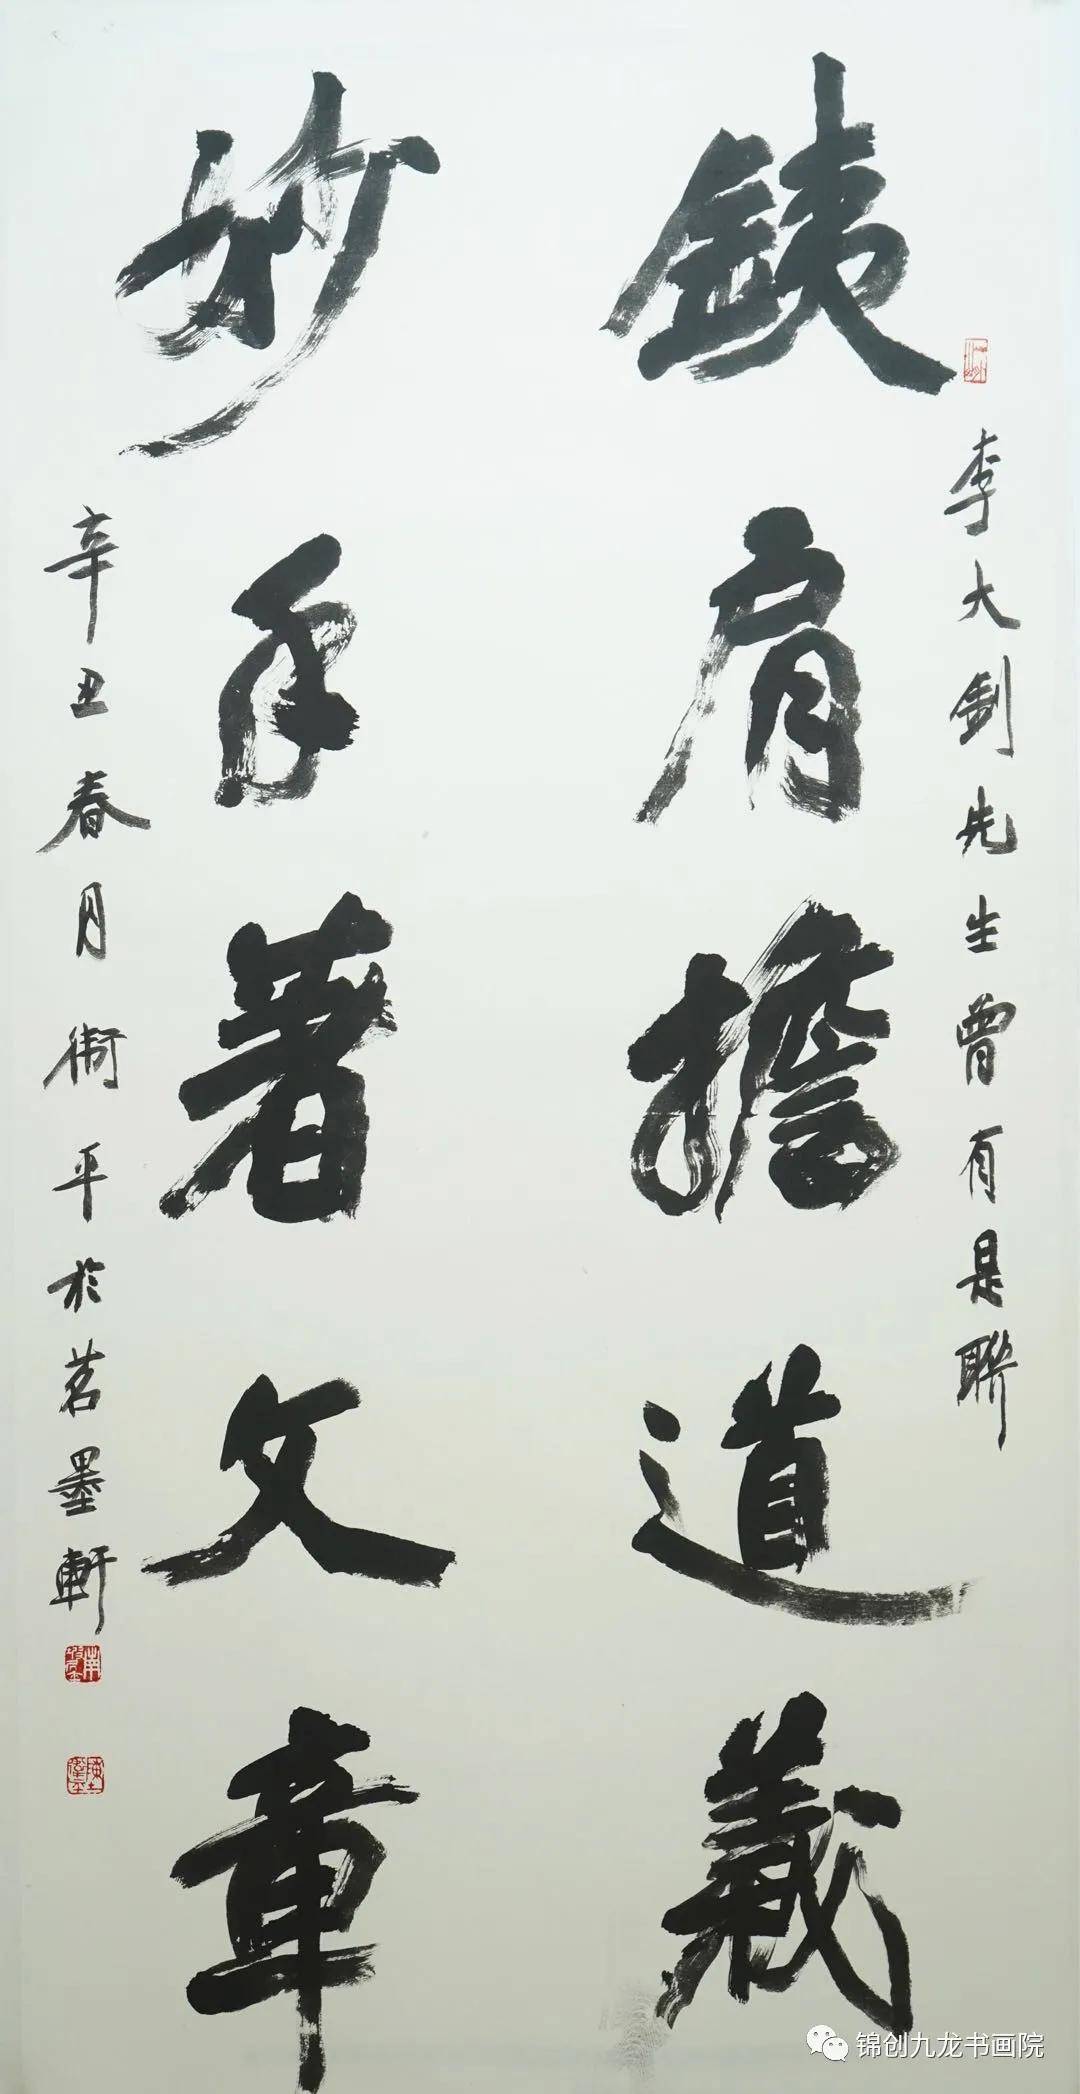 李大釗先生曾有是聯
銕肩擔道義
妙手著文章
辛丑春月衛平於茗墨軒
锦创九龙书画院